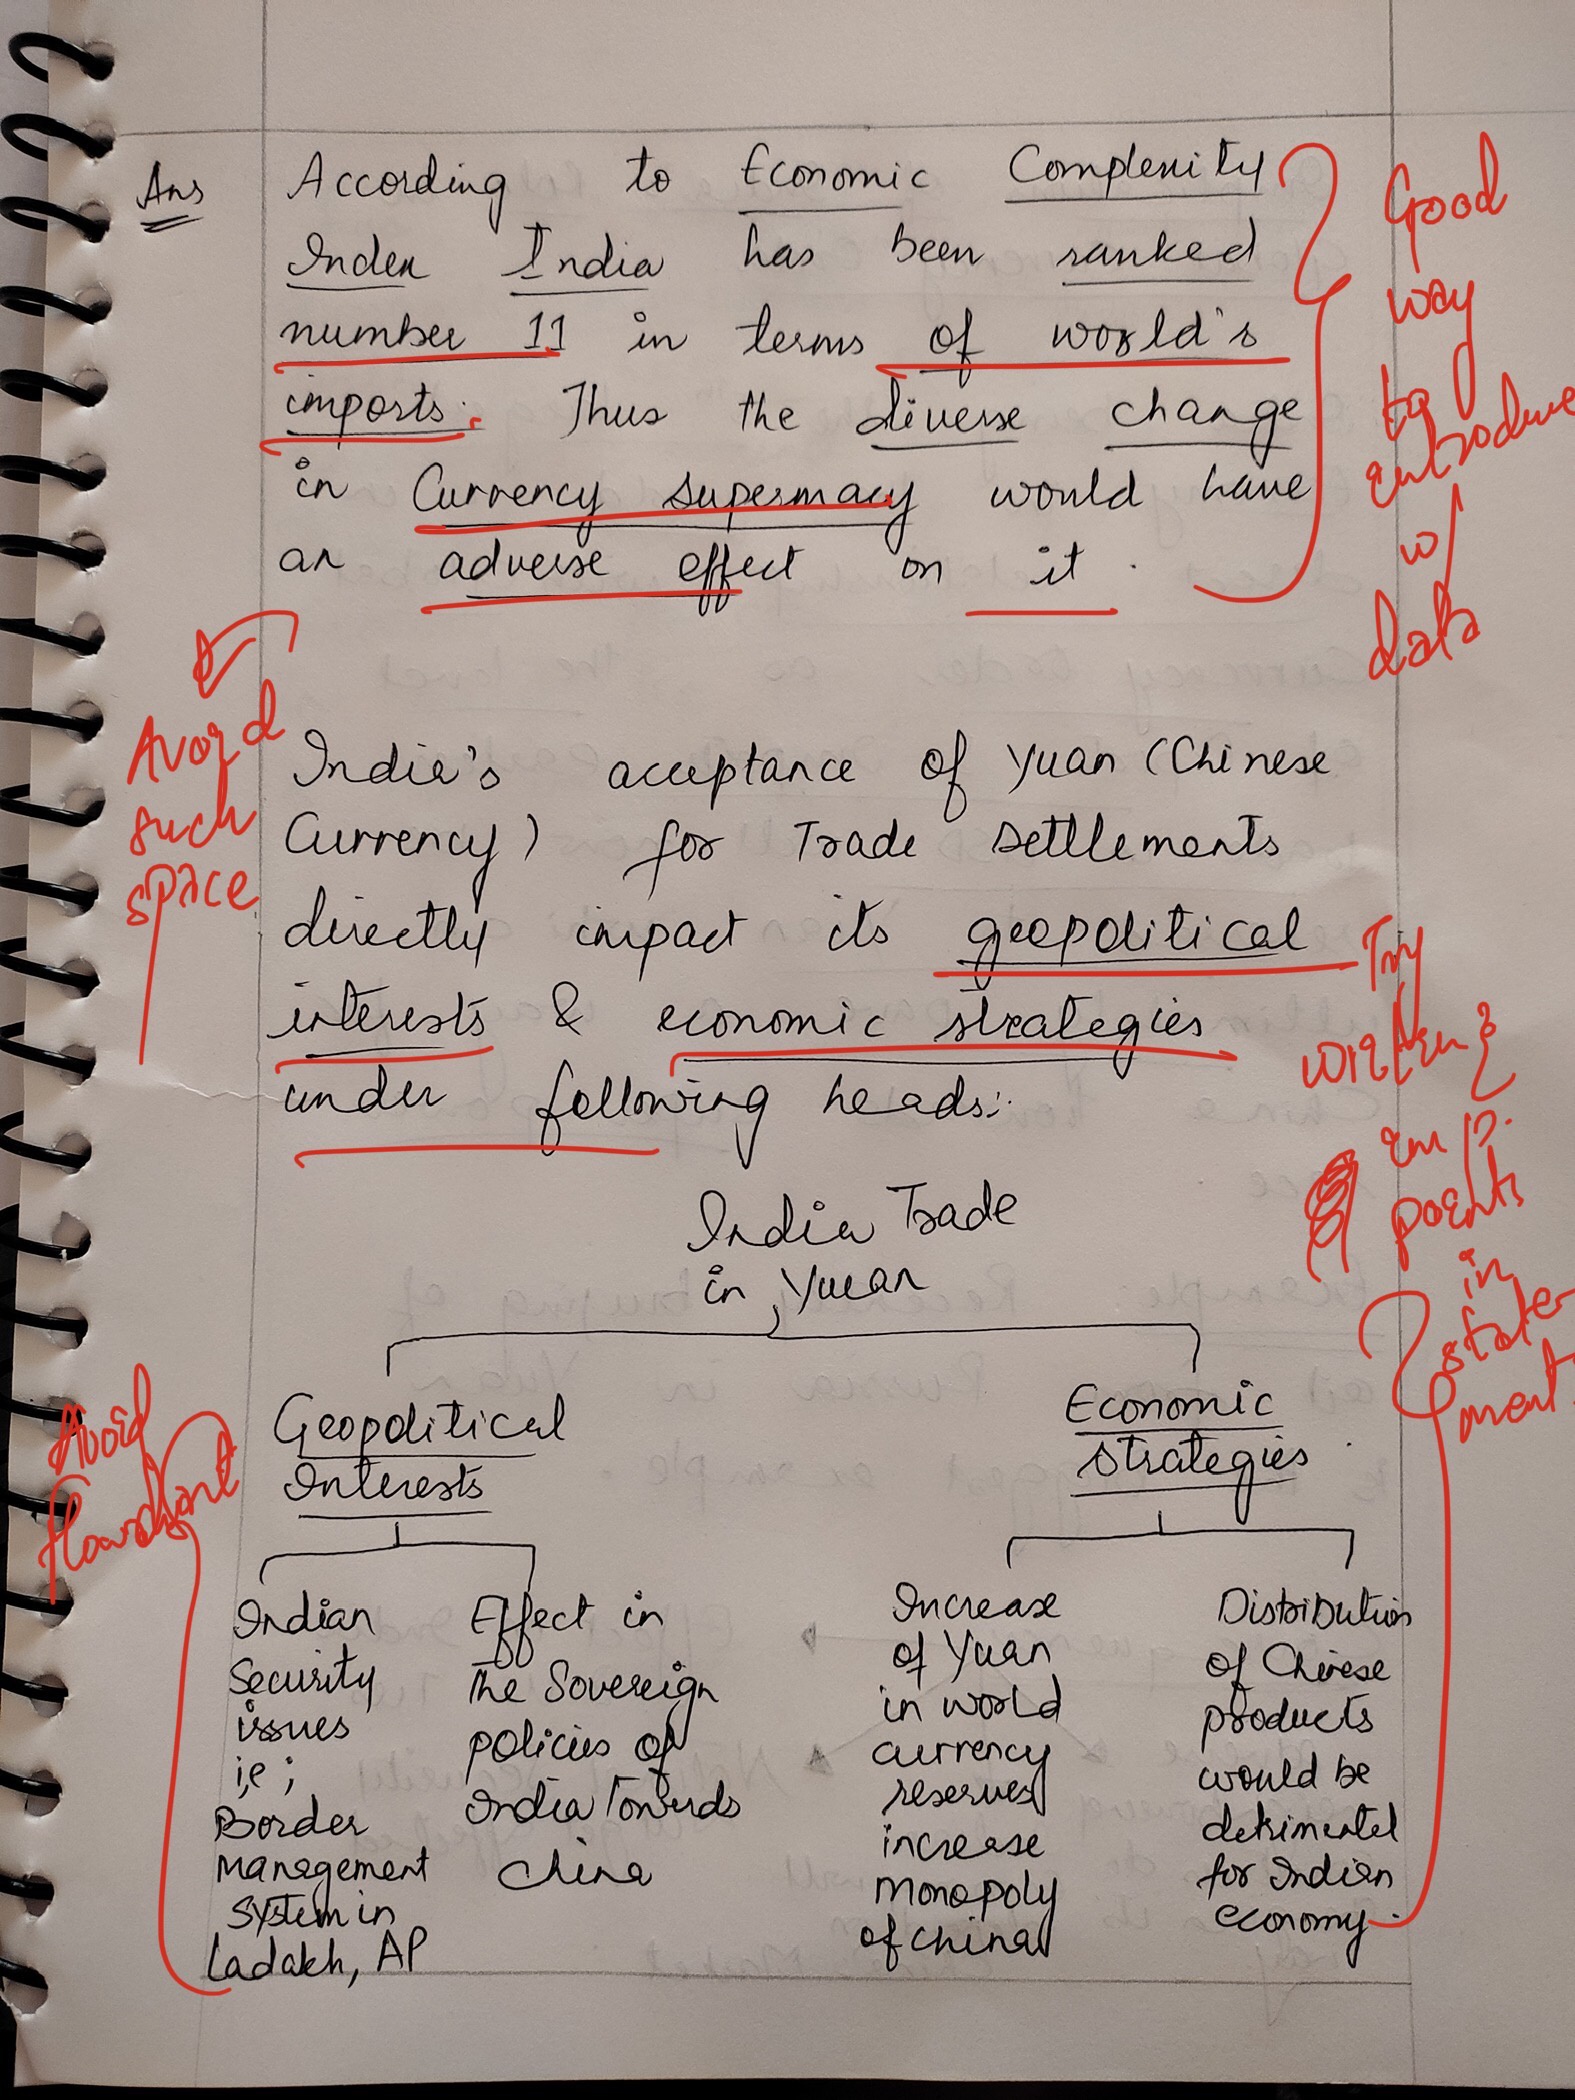 Ans According to Economic Complexity
Index India has been ranked
number 11 in terms of world's
imports. Thus the diverse change
in Currency supermacy would have
an adverse effect on it.
Good
way
to
introduce
w/
data
Avoid
such
space
India's acceptance of Yuan (Chinese
Currency) for Trade settlements
directly impact its geopolitical
interests & economic strategies
under following heads:
Try
writing
imp.
points
in
state-
ment.
India Trade
in Yuean
Avoid
flowchart
Geopolitical
Interests
Economic
strategies
Indian
Security
issues
i,e ;
Border
Management
System in
Ladakh, AP
Effect in
the Sovereign
policies of
India Towards
China
Increase
of Yuan
in world
currency
reserves
increase
monopoly
of china
Distribution
of Chinese
products
would be
detrimental
for Indian
economy.